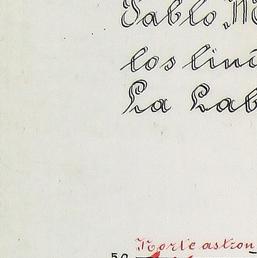 Pablo M
los lind
La Lab
Norte astron
50